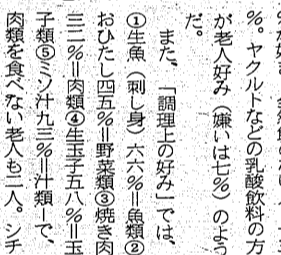 %。ヤクルトなどの乳酸飲料の方
が老人好み（嫌いは七%）のよう
だ。
また、「調理上の好み」では、
①生魚（刺し身）六六%＝魚類②
おひたし四五%＝野菜類③焼き肉
三二%＝肉類④生玉子五八%＝玉
子類⑤ミソ汁九三%＝汁類－で、
肉類を食べない老人も二人。シチ